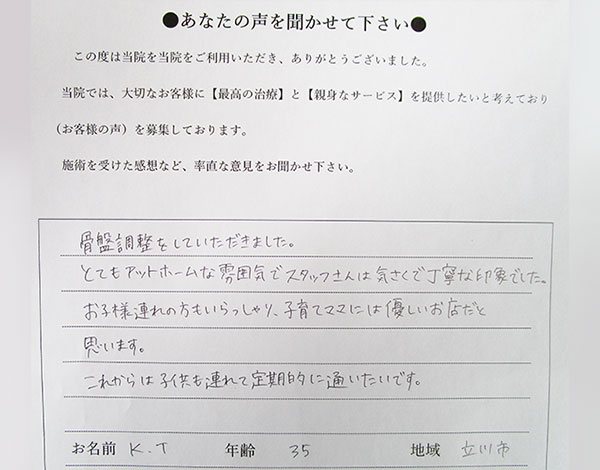 ●あなたの声を聞かせて下さい●
この度は当院を当院をご利用いただき、ありがとうございました。
当院では、大切なお客様に【最高の治療】と【親身なサービス】を提供したいと考えており
(お客様の声) を募集しております。
施術を受けた感想など、率直な意見をお聞かせ下さい。
骨盤調整をしていただきました。
とてもアットホームな雰囲気でスタッフさんは気さくで丁寧な印象でした。
お子様連れの方もいらっしゃり、子育てママには優しいお店だと
思います。
これからは子供も連れて定期的に通いたいです。
お名前 K.T 年齢 35 地域 立川市